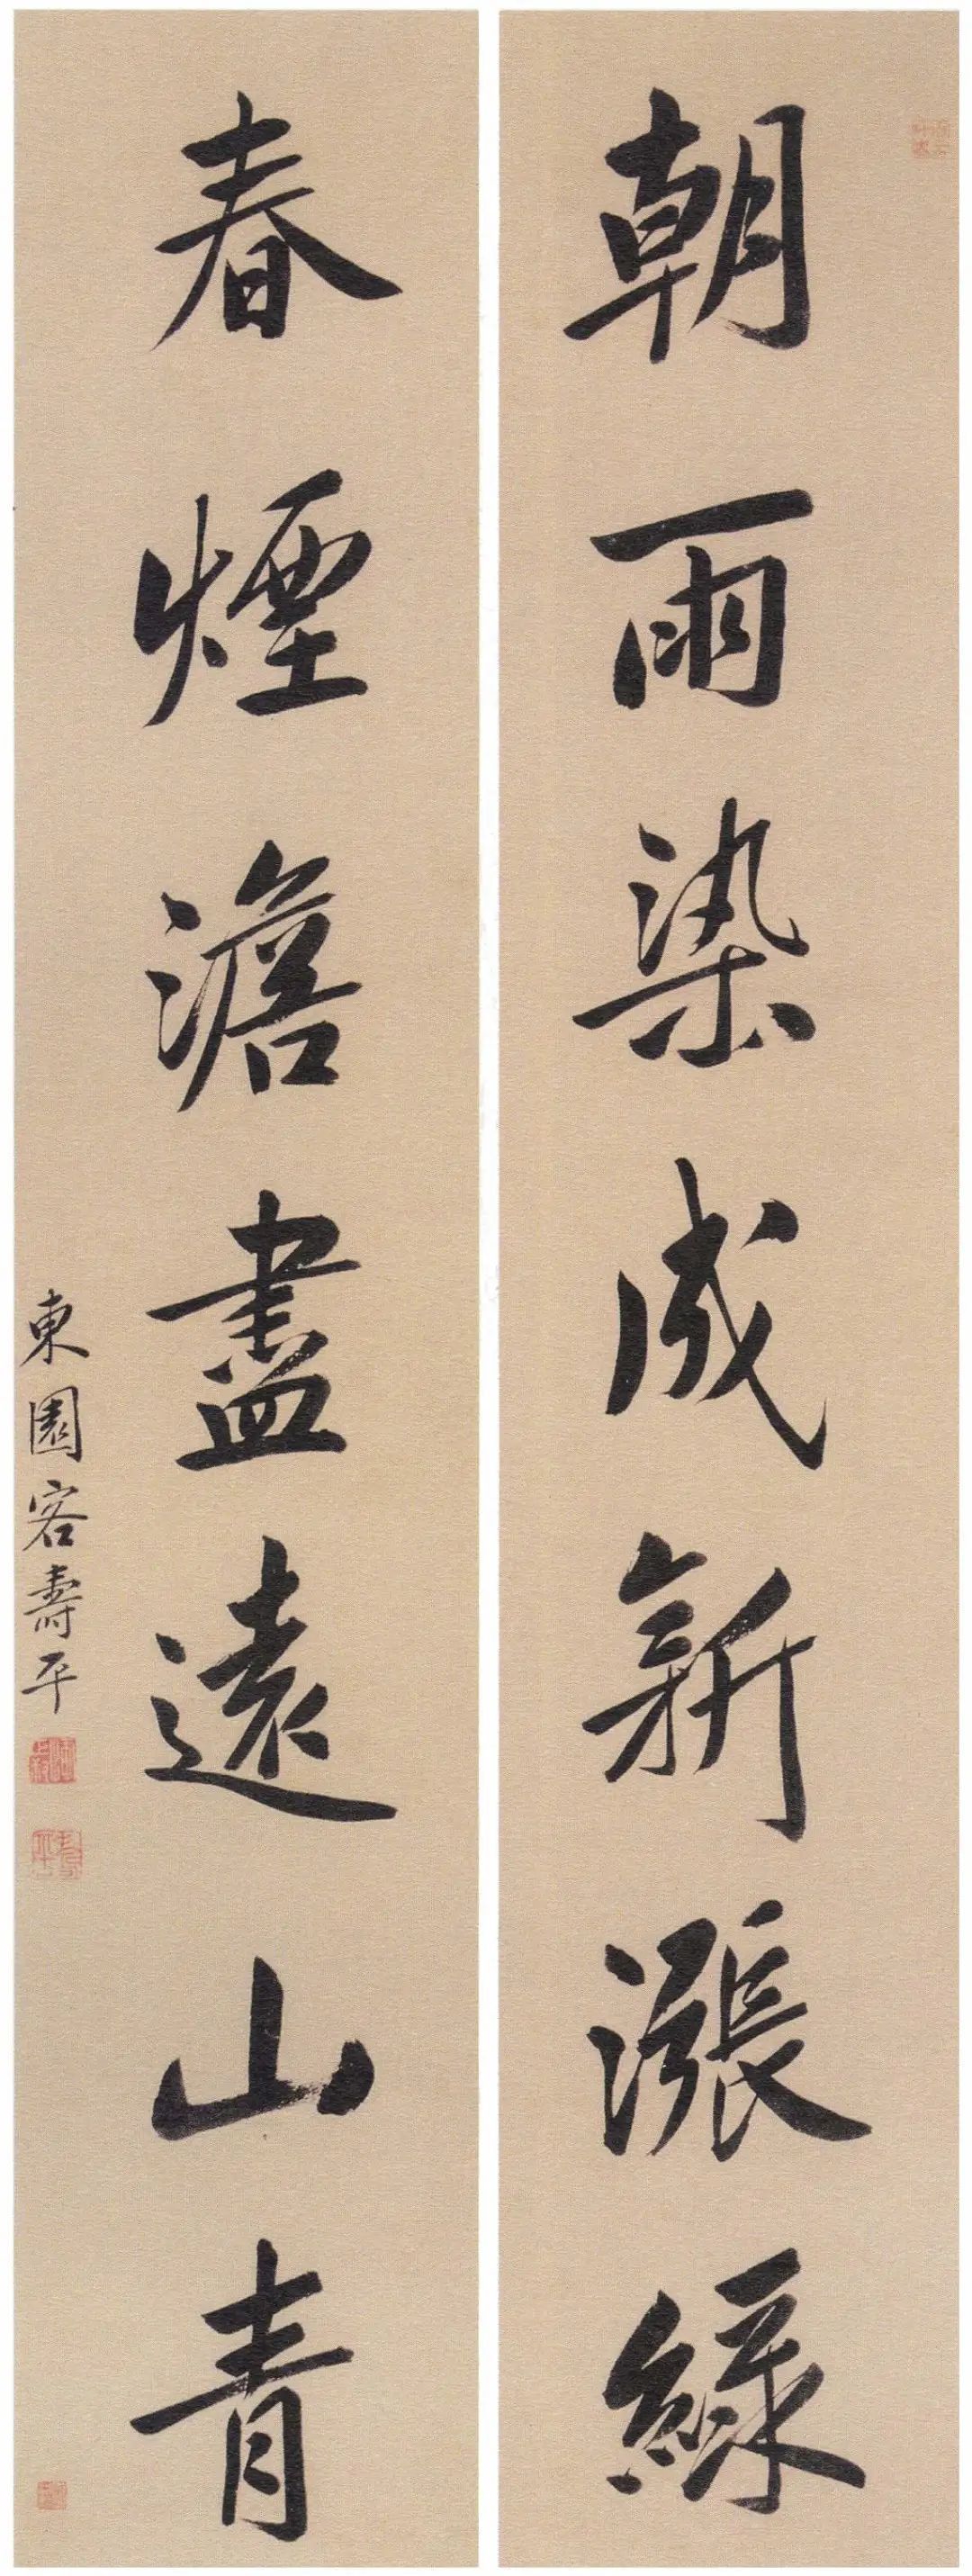 朝雨染成新漲綠
春煙澹盡遠山青
東園客壽平